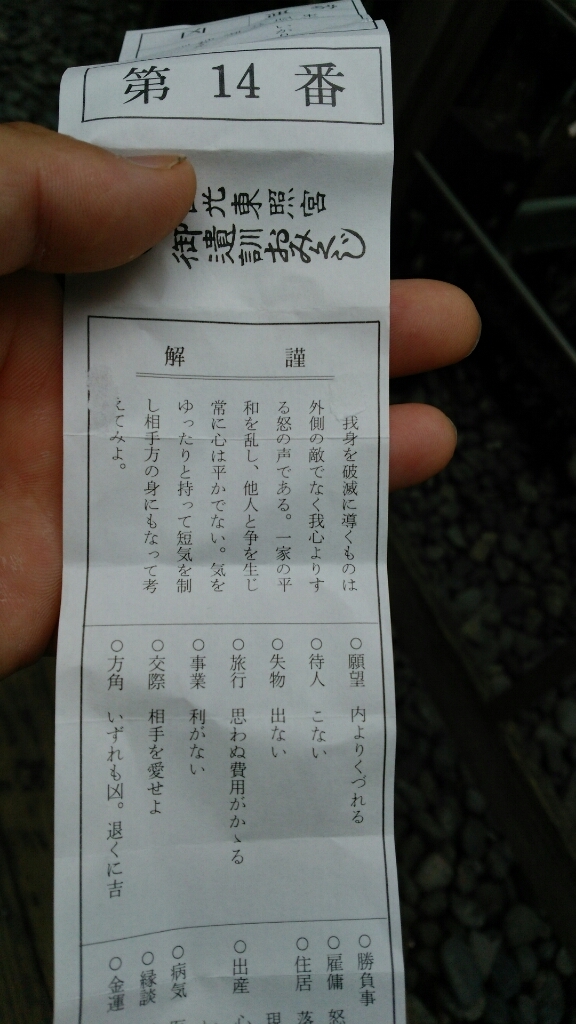 第 14 番
光東照宮
御遺訓おみくじ
謹解
我身を破滅に導くものは
外側の敵でなく我心よりす
る怒の声である。一家の平
和を乱し、他人と争を生じ
常に心は平かでない。気を
ゆったりと持って短気を制
し相手方の身にもなって考
えてみよ。
○願望 内よりくづれる
○待人 こない
○失物 出ない
○旅行 思わぬ費用がかゝる
○事業 利がない
○交際 相手を愛せよ
○方角 いずれも凶。退くに吉
○勝負事
○雇傭 怒
○住居 落
○出産 心
○病気
○縁談
○金運